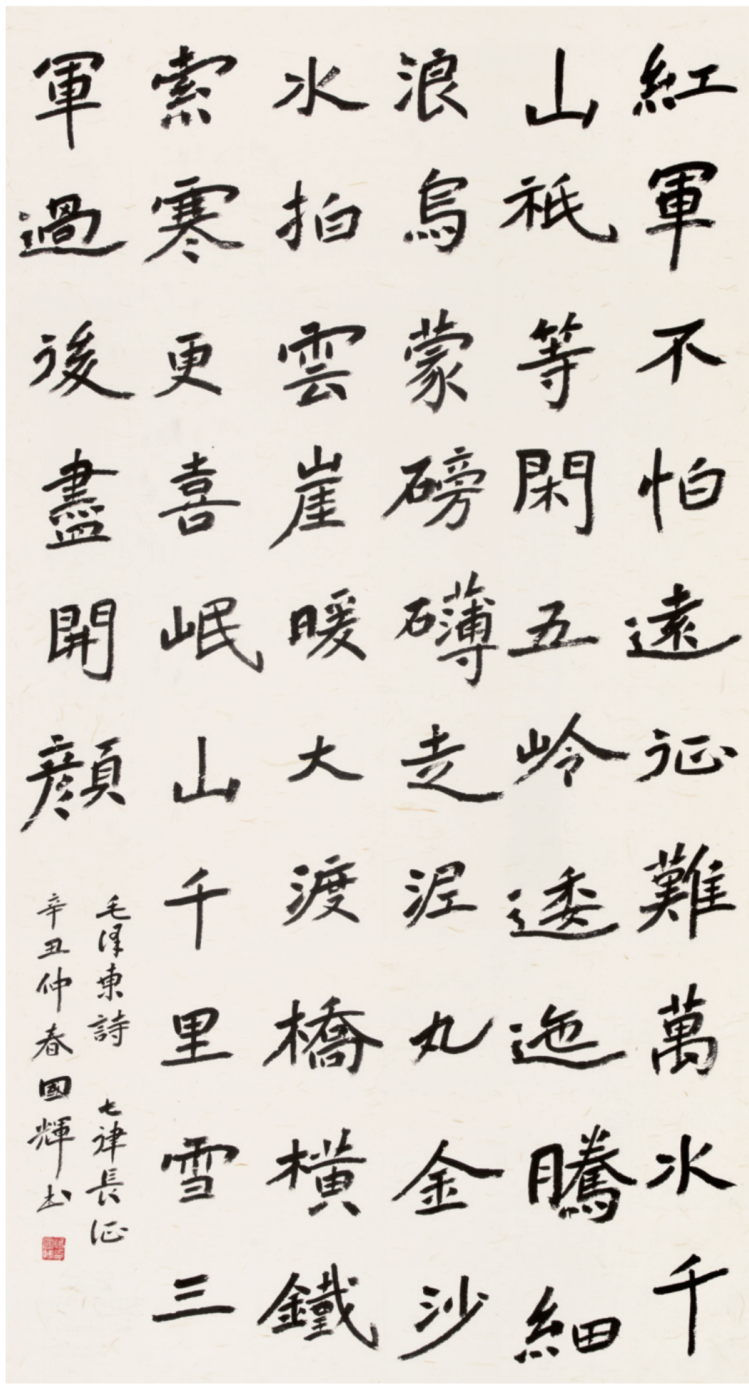 紅軍不怕遠征難萬水千
山祇等閑五岭逶迤騰細
浪烏蒙磅礴走泥丸金沙
水拍雲崖暖大渡橋橫鐵
索寒更喜岷山千里雪三
軍過後盡開顏
毛澤東詩 七律長征
辛丑仲春國輝书